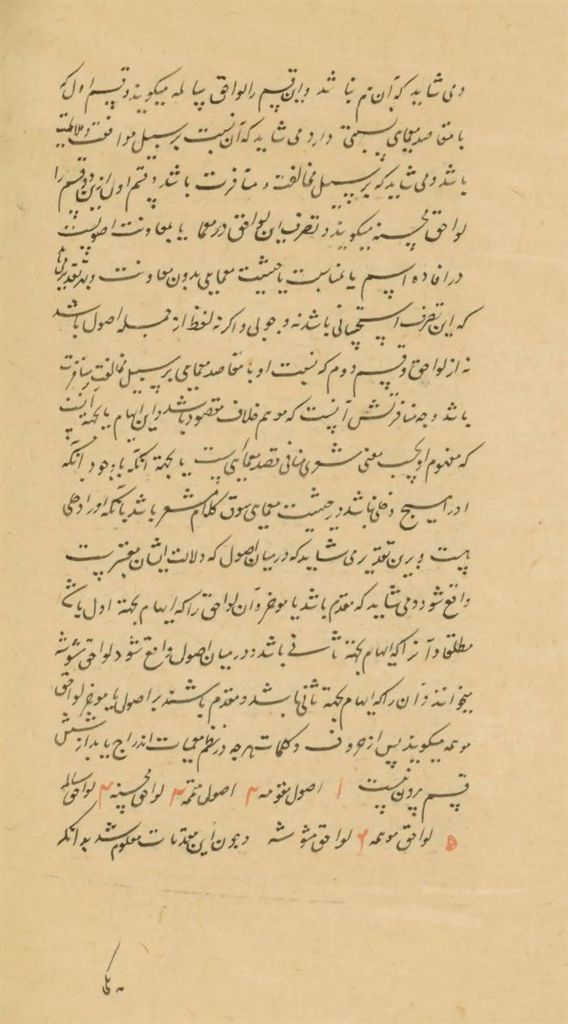 ومی شاید که آن هم نباشد و این قسم را لواحق سالمه میگویند و قسم اول که
با مقاصد معمای نسبتی دارد می شاید که آن نسبت بر سبیل موافقت و ملایمت
باشد و می شاید که بر سبیل مخالفت و منافرت باشد و قسم اول ازین دو قسم را
لواحق محسنه میگویند و تصرف این لواحق در معما یا بمعاونت اصولیست
در افاده اسم یا بمناسبت با حیثیت معمایی بدون معاونت و بهر تقدیر
که این تصرف استحسانی باشد نه وجوبی و اگر نه لفظ از جمله اصول باشد
نه از لواحق و قسم دوم که نسبت او با مقاصد معمایی بر سبیل مخالفت و منافرت
باشد وجه منافرتش آنست که موهم خلاف مقصود باشد و این ایهام یا بجهة آنست
که مفهوم او بحسب معنی شعری منافی قصد معمایی است یا بجهة آنکه با وجود آنکه
اورا هیچ دخلی نباشد در حیثیت معمای سوق کلام مشعر باشد بآنکه اورا دخلی
هست و برین تقدیر می شاید که در میان اصول که دلالت ایشان معتبرست
واقع شود و می شاید که مقدم باشد یا موخر و آن لواحق را که ایهام بجهة اول باشد
مطلقا و آنرا که ایهام بجهة ثانی باشد و در میان اصول واقع شود لواحق مشوشه
میخوانند و آن را که ایهام بجهة ثانی باشد و مقدم باشند بر اصول یا موخر لواحق
موهمه میگویند پس از حروف و کلمات هرچه در نظم معمیات اندراج یابد از شش
قسم بیرون نیست ۱ اصول مقومه ۲ اصول متممه ۳ لواحق محسنه ۴ لواحق سالمه
۵ لواحق موهمه ۶ لواحق مشوشه و چون این مقدمات معلوم شد بدانکه